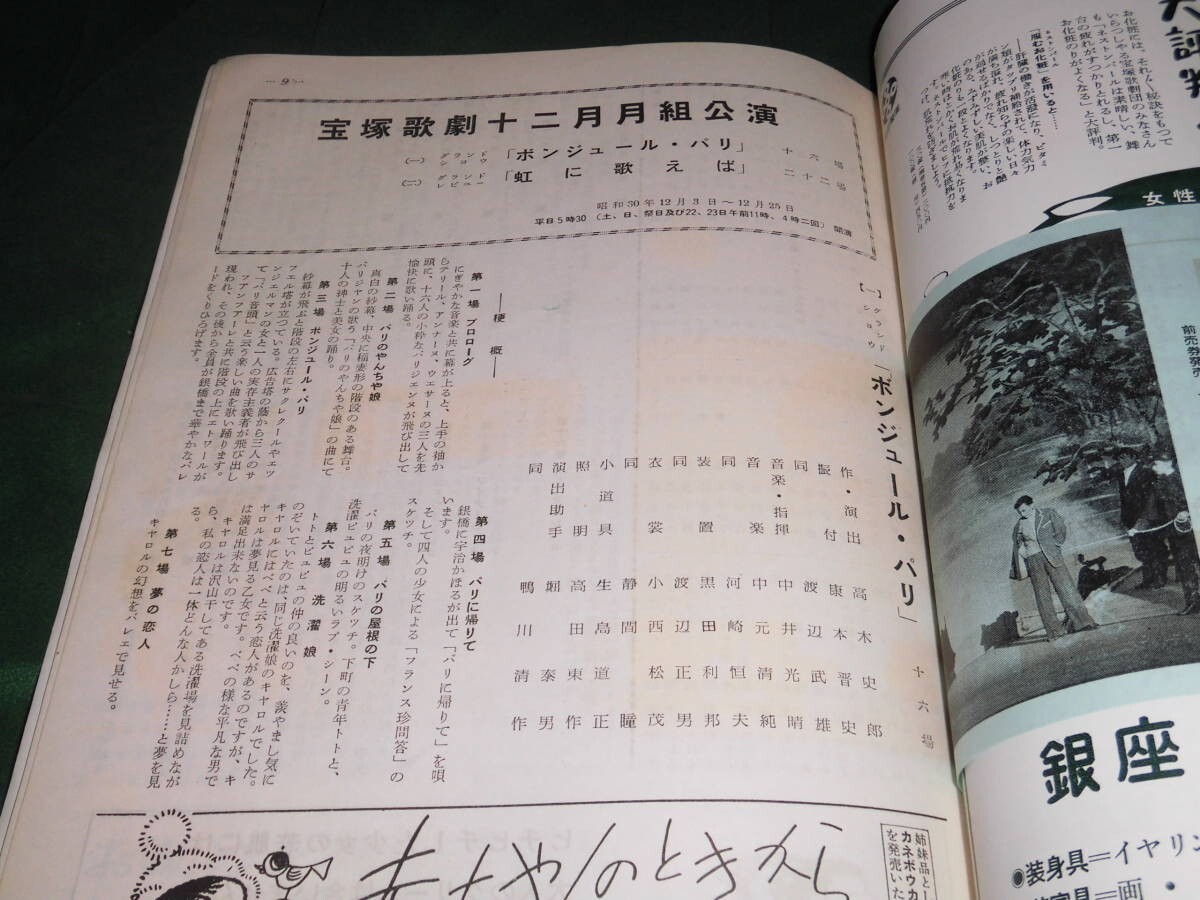 — 9 —
宝塚歌劇十二月月組公演
(一) グランドショウ 「ボンジュール・パリ」 十六場
(二) グランドレビュー 「虹に歌えば」 二十二場
昭和30年12月3日〜12月25日
平日5時30 (土、日、祭日及び22、23日午前11時、4時二回) 開演
【一】グランドショウ 「ボンジュール・パリ」 十六場
作・演出 高木史郎
振付 康本晋史
同 渡辺武雄
音楽・指揮 中井光晴
音楽 中元清純
同 河崎恒夫
装置 黒田利邦
同 渡辺正男
衣裳 小西松茂
同 静間瞳
小道具 生島道正
照明 高田東作
演出助手 堀泰男
同 鴨川清作
——梗概——
第一場 プロローグ
にぎやかな音楽と共に幕が上ると、上手の袖か
らテリール、アンナーヌ、ウエサーヌの三人を先
頭に、十六人の小粋なパリジェンヌが飛び出して
愉快に歌い踊る。
第二場 パリのやんちや娘
真白の紗幕、中央に稲妻形の階段のある舞台。
パリジヤンの歌う「パリのやんちや娘」の曲にて
十人の紳士と美女の踊り。
第三場 ボンジュール・パリ
紗幕が飛ぶと階段の左右にサクレクールやエツ
フェル塔が立つている。広告塔の蔭から三人のサ
ンジェルマンの女と一人の実存主義者が飛び出し
て「パリ音頭」と云う楽しい曲を歌い踊ります。
フアンフアーレと共に階段の上にエトワールが
現われ、その後から全員が銀橋まで華やかなパレ
ードをくりひろげます。
第四場 パリに帰りて
銀橋に宇治かほるが出て「パリに帰りて」を唄
います。
そして四人の少女による「フランス珍問答」の
スケッチ。
第五場 パリの屋根の下
パリの夜明けのスケツチ。下町の青年トトと、
洗濯娘ピュピュの明るいラブ・シーン。
第六場 洗濯娘
トトとピュピュの仲の良いのを、羨やまし気に
のぞいていたのは、同じ洗濯娘のキャロルでした。
キャロルにはペペと云う恋人があるのですが、キ
ャロルは夢見る乙女です。ペペの様な平凡な男で
は満足出来ないのです。
キャロルは沢山干してある洗濯場を見詰めなが
ら、私の恋人は一体どんな人かしら……と夢を見
る。
第七場 夢の恋人
キャロルの幻想をバレェで見せる。
お化粧には、それ〲秘訣をもつて
いらつしやる宝塚歌劇団のみなさん
も「ネストンパールは素晴しい、舞
台の疲れがすつかりとれるし、第一
お化粧のりがよくなる」と大評判。
「服むお化粧」を用いると……
女性
前売券発売
銀座
●装身具＝イヤリン
画・
姉妹品とし
カネボウカ
を発売いた
のときから